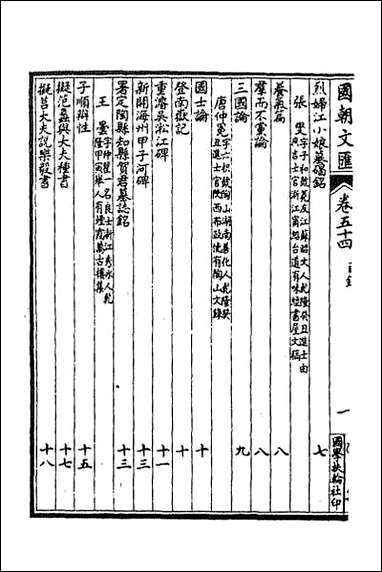 國朝文匯 卷五十四 目錄 一 國學扶輪社印
烈婦江小娘墓碣銘 七
張燮 字子和號蕘友江蘇昭文人乾隆癸丑進士由
庶吉士官浙江甯紹台道有味經書屋文稿
養氣篇 八
羣而不黨論 八
三國論 九
唐仲冕 字六枳號陶山湖南善化人乾隆癸
丑進士官陝西布政使有陶山文錄
國士論 十
登南嶽記 十
重濬吳淞江碑 十一
新開海州甲子河碑 十三
署定陶縣知縣賀君墓誌銘 十三
王曇 字仲瞿一名良士浙江秀水人乾
隆甲寅舉人有煙霞萬古樓集
子順辯性 十五
擬范蠡與大夫種書 十七
擬莒大夫說樂毅書 十八